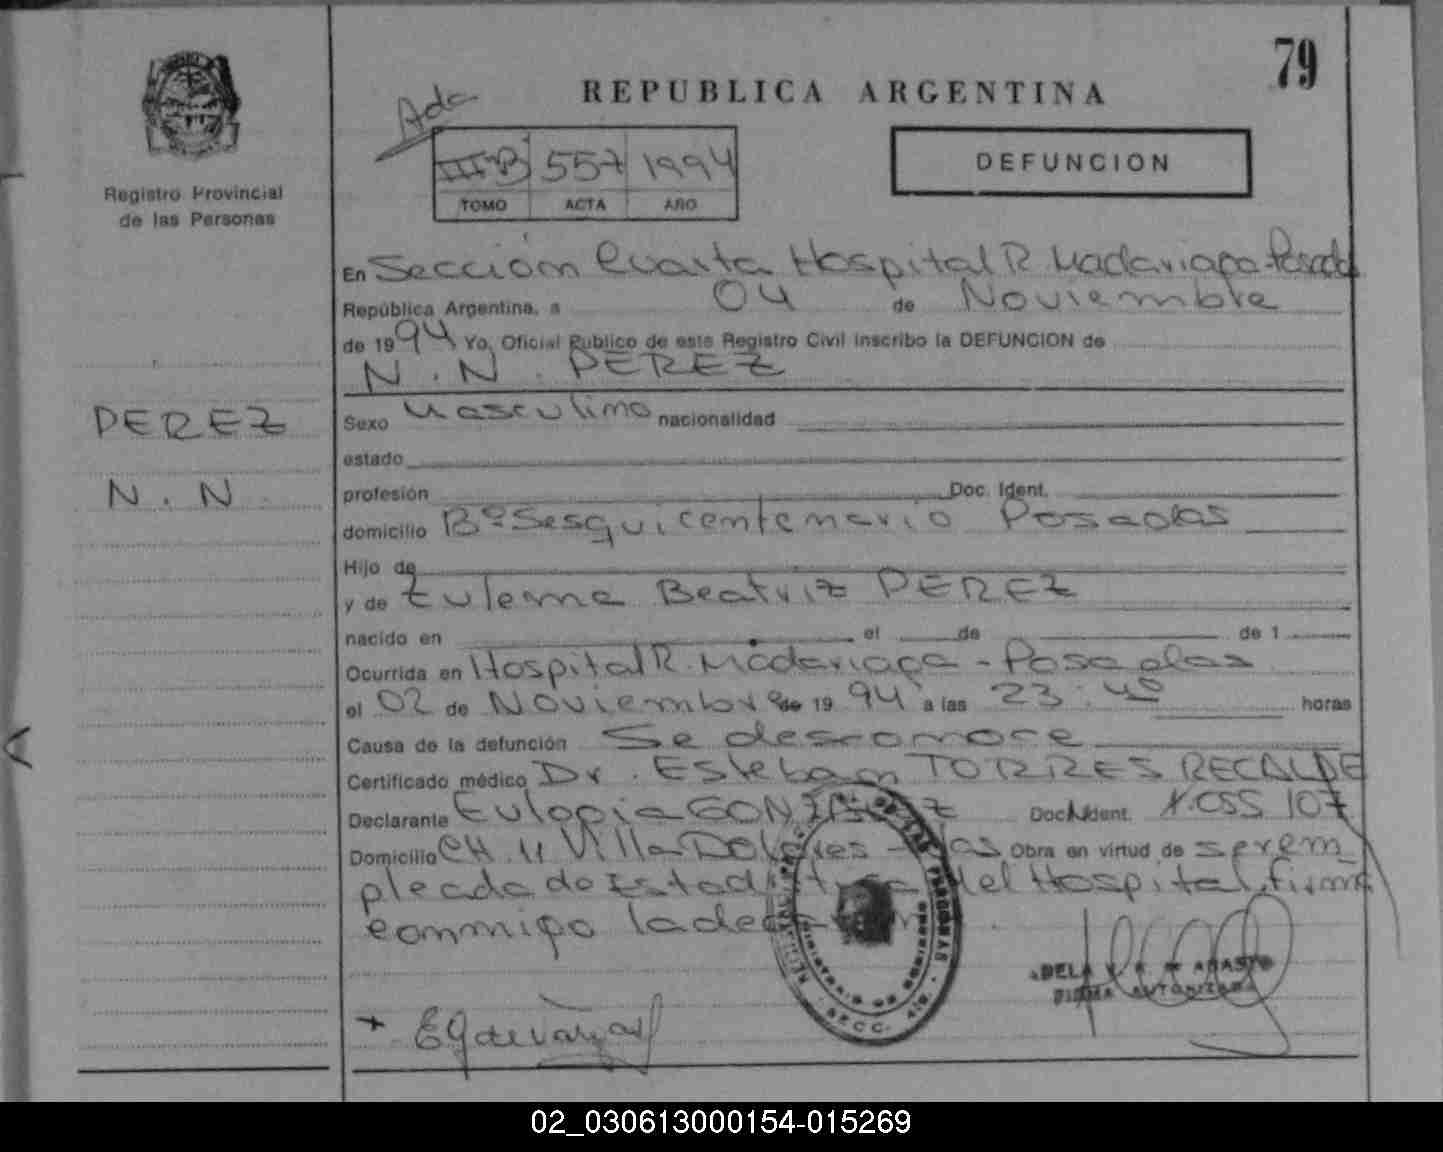 79
REPUBLICA ARGENTINA
Ada
III B 557 1994
TOMO ACTA AÑO
DEFUNCION
Registro Provincial
de las Personas
En Sección Cuarta Hospital R. Madariaga - Posadas
República Argentina, a 04 de Noviembre
de 1994 Yo, Oficial Publico de este Registro Civil inscribo la DEFUNCION de
N. N. PEREZ
PEREZ
N. N.
Sexo Masculino nacionalidad
estado
profesión Doc. Ident.
domicilio Bº Sesquicentenario Posadas
Hijo de
y de Zulema Beatriz PEREZ
nacido en el de de 1
Ocurrida en Hospital R. Madariaga - Posadas
el 02 de Noviembre de 1994 a las 23:40 horas
Causa de la defunción Se desconoce
Certificado médico Dr. Esteban TORRES RECALDE
Declarante Eulogia GONZALEZ Doc. Ident. 1.055 107
Domicilio CH. 11 Villa Dolores - Pdas Obra en virtud de ser em
pleada de Estadistica del Hospital, firma
conmigo la
FIRMA AUTORIZADA
SECC. 4ta.
02_030613000154-015269